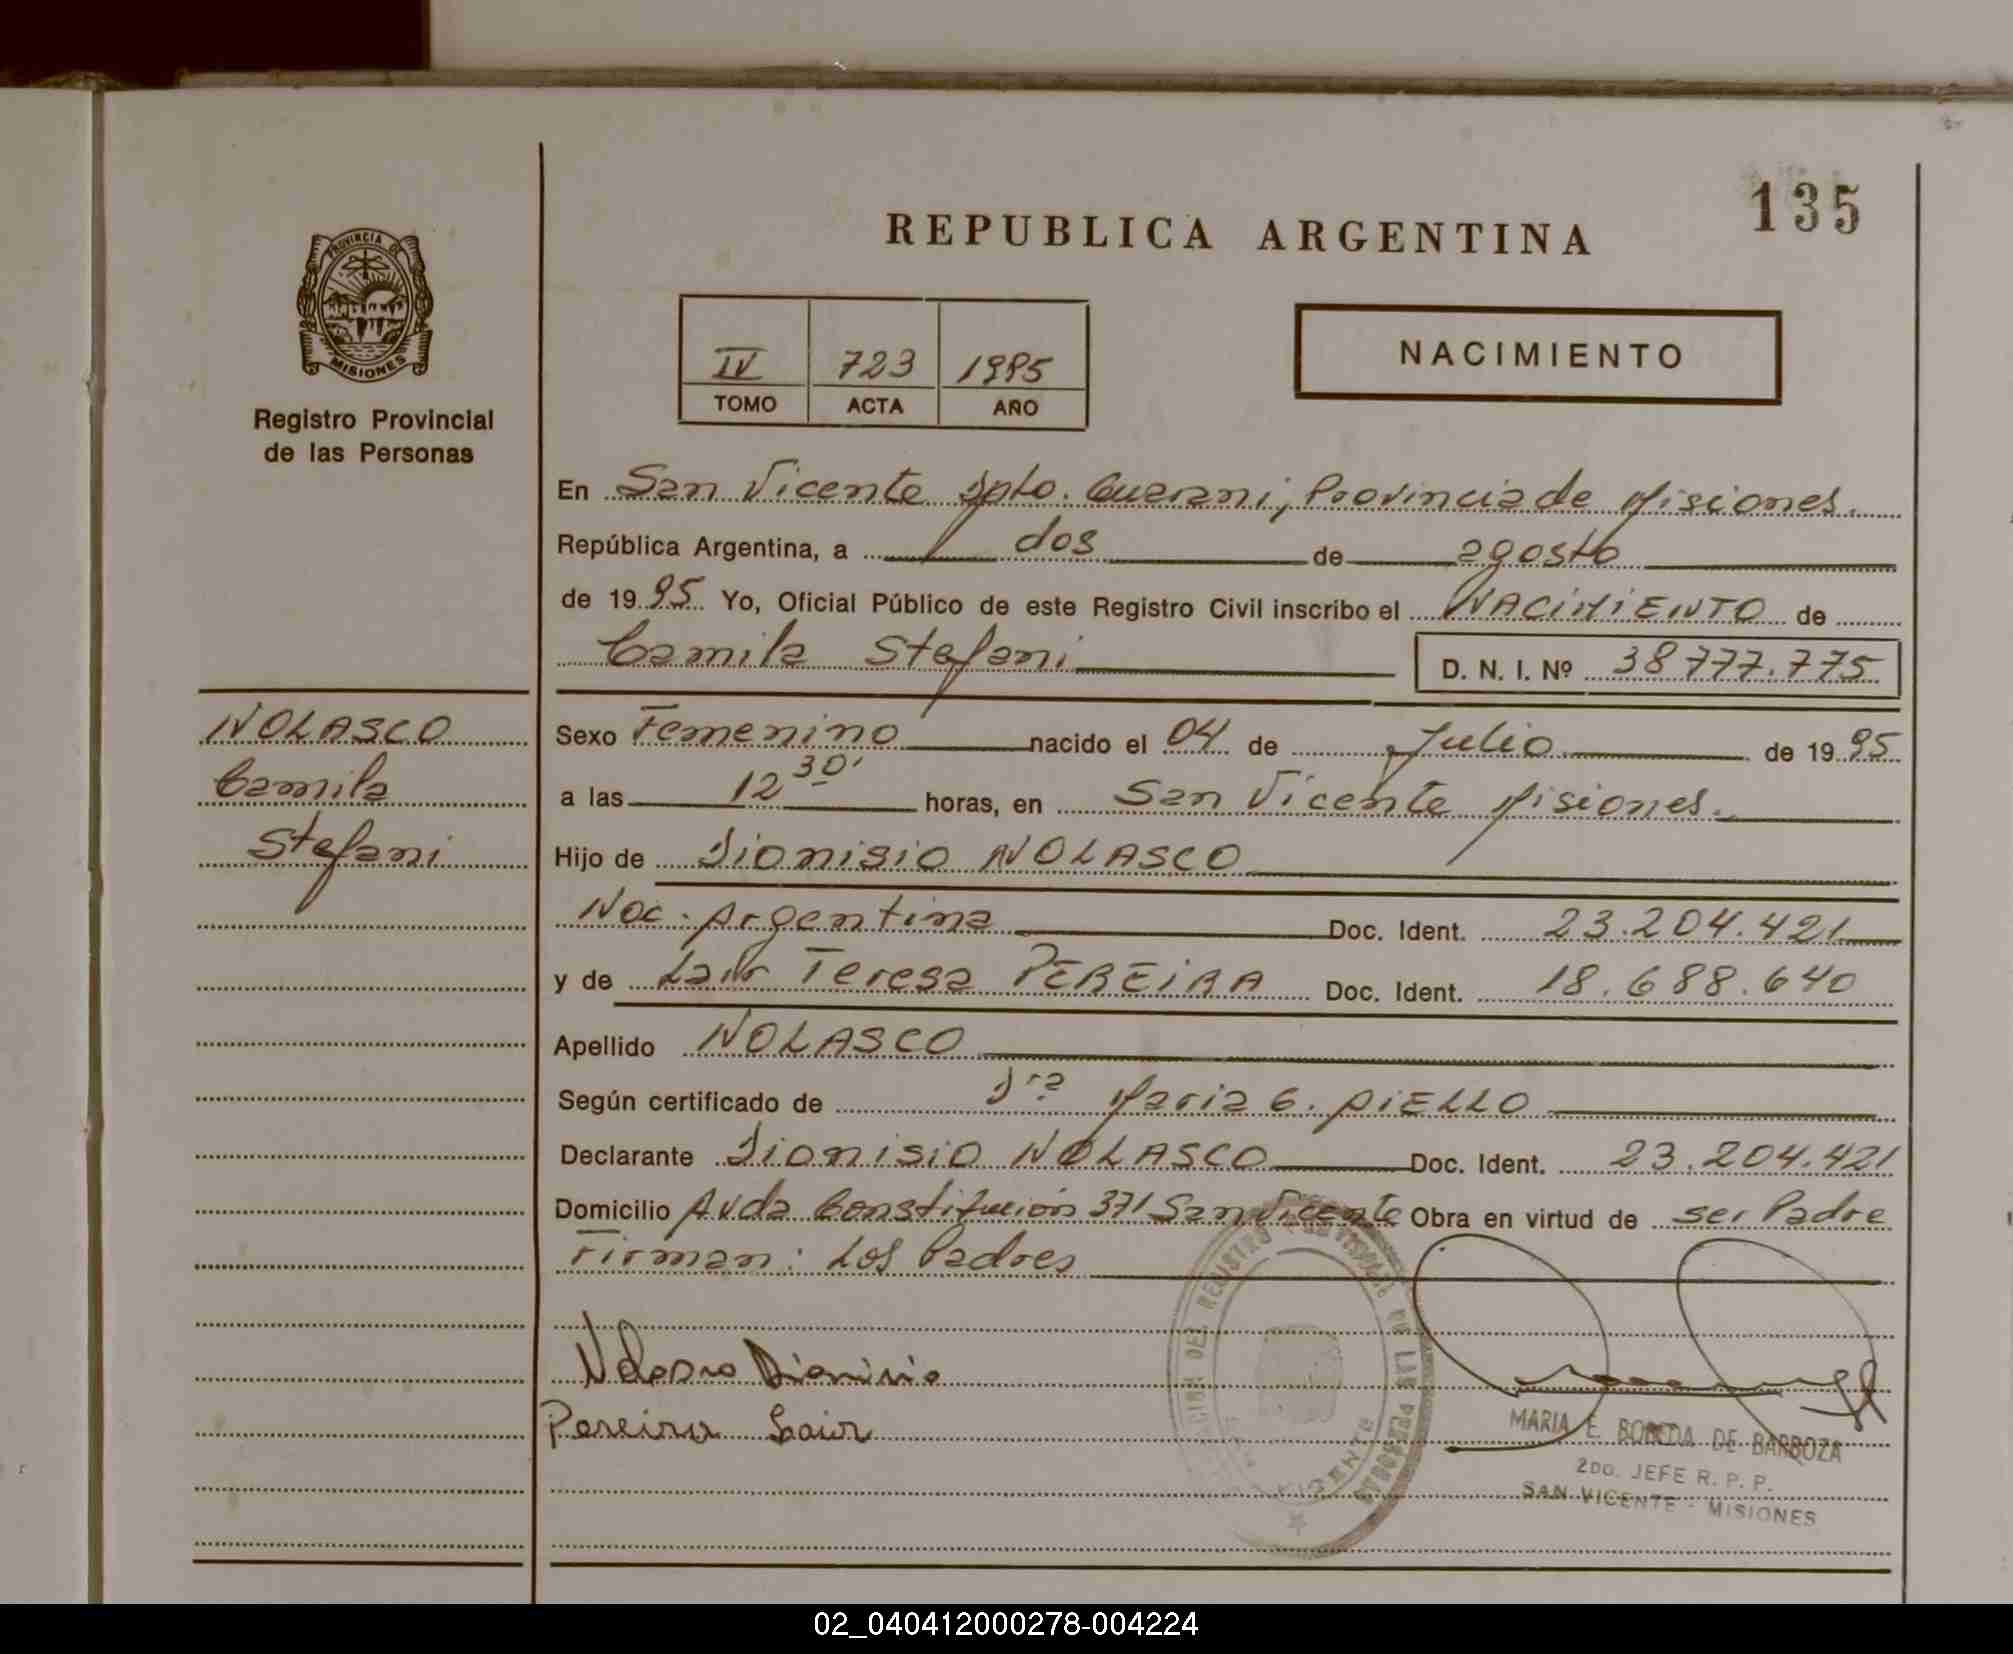 135
REPUBLICA ARGENTINA
PROVINCIA DE
MISIONES
Registro Provincial
de las Personas
IV 723 1995
TOMO ACTA AÑO
NACIMIENTO
En San Vicente Dpto. Guarani, Provincia de Misiones.
República Argentina, a dos de agosto
de 1995 Yo, Oficial Público de este Registro Civil inscribo el NACIMIENTO de
Camila Stefani D. N. I. Nº 38777.775
NOLASCO
Camila
Stefani
Sexo Femenino nacido el 04 de Julio de 1995
a las 12 30' horas, en San Vicente Misiones.
Hijo de Dionisio NOLASCO
Nac. Argentina Doc. Ident. 23.204.421
y de Lair Teresa PEREIRA Doc. Ident. 18.688.640
Apellido NOLASCO
Según certificado de Dra Maria G. AIELLO
Declarante Dionisio NOLASCO Doc. Ident. 23.204.421
Domicilio Avda Constitución 371 San Vicente Obra en virtud de ser Padre
Firman: Los Padres
Nolasco Dionisio
Pereira Lair
DEL REGISTRO PROVINCIAL DE LAS PERSONAS
VICENTE
MARIA E. BOBEDA DE BARBOZA
2DO. JEFE R. P. P.
SAN VICENTE - MISIONES
02_040412000278-004224